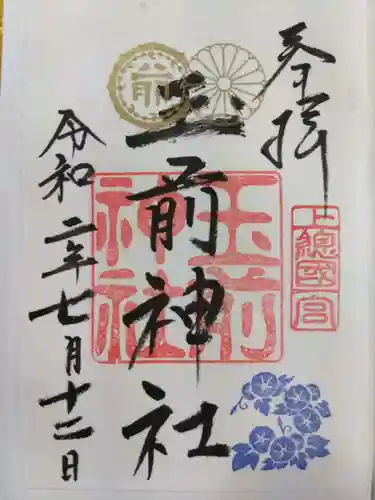 奉拝
上總國一宮
前
玉前神社
玉前神社
令和二年七月十二日